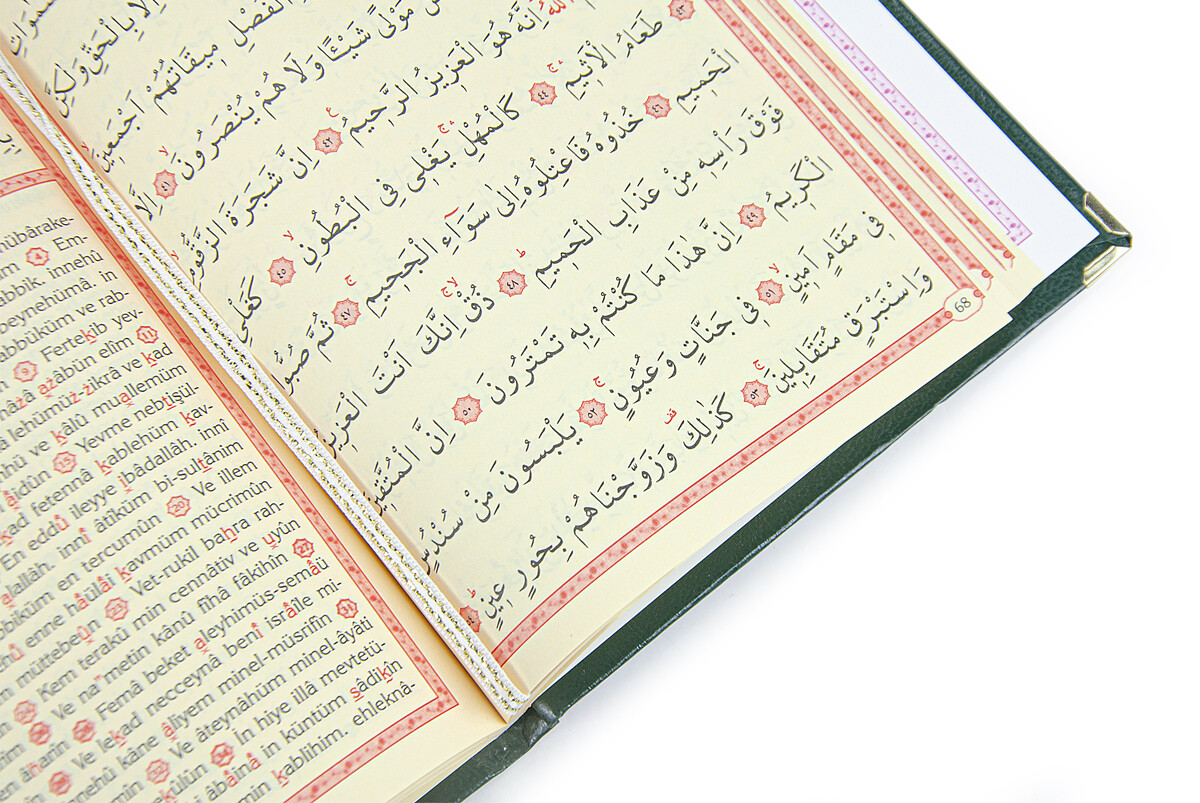 اِلَّا بِالْحَقِّ وَلٰكِنَّ
الْفَصْلِ مِيقَاتُهُمْ اَجْمَعِينَ
مَوْلًى شَيْـًٔا وَلَا هُمْ يُنْصَرُونَ ٤١ اِلَّا
اللّٰهُ اِنَّهُ هُوَ الْعَزِيزُ الرَّحِيمُ ٤٢ اِنَّ شَجَرَةَ الزَّقُّومِ
٤٣ طَعَامُ الْاَثِيمِ ٤٤ كَالْمُهْلِ يَغْلِى فِى الْبُطُونِ ٤٥ كَغَلْىِ
الْحَمِيمِ ٤٦ خُذُوهُ فَاعْتِلُوهُ اِلٰى سَوَٓاءِ الْجَحِيمِ ٤٧ ثُمَّ صُبُّوا
فَوْقَ رَأْسِهِ مِنْ عَذَابِ الْحَمِيمِ ٤٨ ذُقْ اِنَّكَ اَنْتَ الْعَزِيزُ
الْكَرِيمُ ٤٩ اِنَّ هٰذَا مَا كُنْتُمْ بِهِ تَمْتَرُونَ ٥٠ اِنَّ الْمُتَّقِينَ
فِى مَقَامٍ اَمِينٍ ٥١ فِى جَنَّاتٍ وَعُيُونٍ ٥٢ يَلْبَسُونَ مِنْ سُنْدُسٍ
وَاِسْتَبْرَقٍ مُتَقَابِلِينَ ٥٣ كَذٰلِكَ وَزَوَّجْنَاهُمْ بِحُورٍ عِينٍ ٥٤
68
mübârake-
4 Em-
abbik. innehû
beynehümâ. in
abbüküm ve rab-
9 Fertekib yev-
azâbün elîm 11
lehümüz-zikra ve kad
ve kâlû muallemüm
15 Yevme nebtişül-
kad fetennâ kablehüm kav-
En eddû ileyye ibâdallâh. innî
alallâh. innî âtîküm bi-sultânim
bbiküm en tercumûn 20 Ve illem
enne hâülâi kavmüm mücrimûn
müttebeûn 23 Vet-rukil bahra rah-
Kem terakû min cennâtiv ve uyûn
Ve na'metin kânû fîhâ fâkihîn 27
28 Femâ beket aleyhimüs-semâü
Ve lekad necceynâ benî isrâîle mi-
kâne âliyem minel-müsrifîn 31
32 Ve âteynâhüm minel-âyâti
34 İn hiye illâ mevtetü-
âbâinâ in küntüm sâdikîn
min kablihim. ehleknâ-